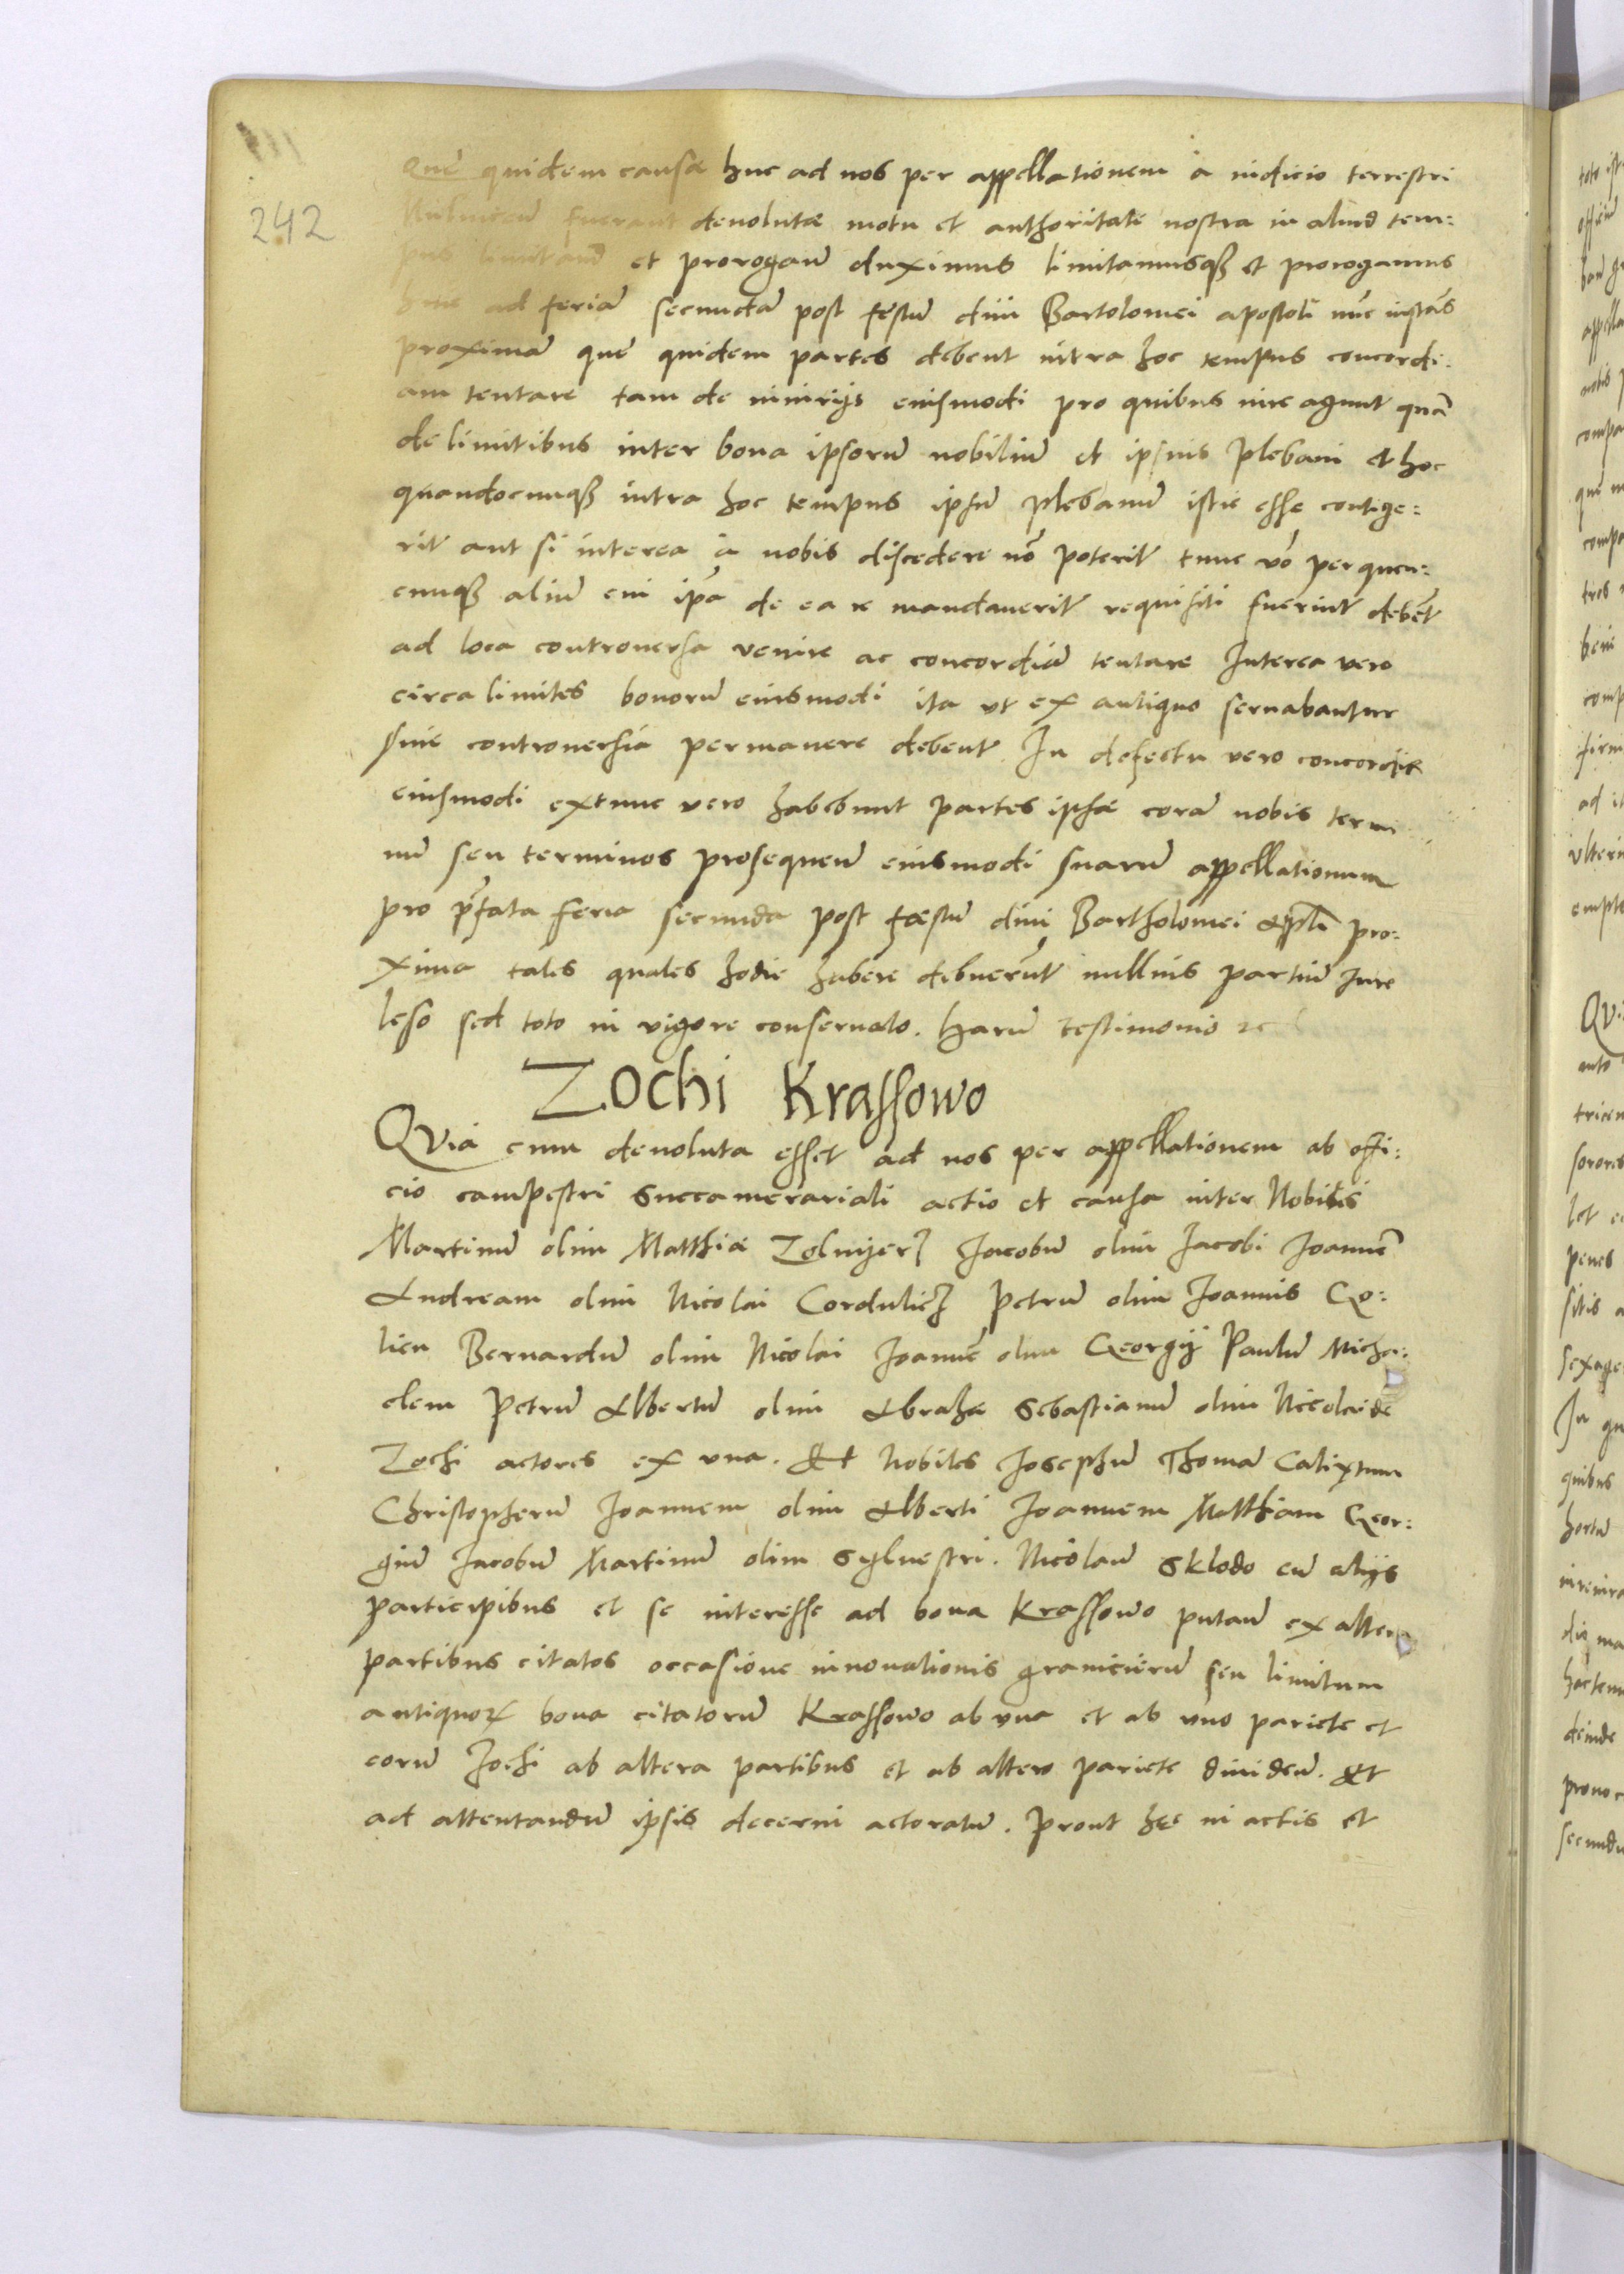 242
que quidem causae huc ad nos per appellationem a iudicio terrestri
fuerant devolutae motu et authoritate nostra in aliud tem:
pus limitand et prorogand duximus limitamusq3 et prorogamus
huc ad feriā secundā post festū divi Bartolomei apostoli nūc instās
proximā que quidem partes debent intra hoc tempus concordi:
am tentare tam de iniurijs eiusmodi pro quibus iure agunt quā
de limitibus inter bona ipsorū nobiliū et ipsius Plebani et hoc
quandocunq3 intra hoc tempus ipsū plebanū istic esse contige:
rit aut si interea a nobis discedere nō poterit tunc vō per quem:
cunq3 aliū cui ipā de ea re mandaverit requisiti fuerint debēt
ad loca controversa venire ac concordiā tentare Interea vero
circa limites bonorū eiusmodi ita ut ex antiquo servabantur
sine controversia permanere debent. In defectu vero concordiae
eiusmodi extunc vero habebunt partes ipsae corā nobis termi
nū seu terminos prosequend eiusmodi suarū appellationum
pro p̄fata feria secunda post fæstū divi Bartholomei apli pro:
xima tales quales hodie habere debuerūt nullius partiū iure
leso sed toto in vigore conservato. harū testimonio
Zochi Krassowo
Quia cum devoluta esset ad nos per appellationem ab offi:
cio campestri Succamerariali actio et causa inter Nobiles
Martinū olim Matthiæ Zolnijerz Jacobū olim Jacobi Joannē
Andream olim Nicolai Cordulicz Petrū olim Joannis Go:
lien Bernardū olim Nicolai Joannē olim Georgij Paulū Micha:
elem Petrū Albertū olim Abrahæ Sebastianū olim Nicolai de
Zochi actores ex una. Et Nobiles Josephū Thomā Calixtum
Christopherū Joannem olim Alberti Joannem Matthiam Geor:
giū Jacobū Martinū olim Sylvestri. Nicolaū Sklodo cū alijs
participibus et se interesse ad bona Krassowo putan ex altera
partibus citatos occasione innovationis granicierū seu limitum
antiquoꝝ bona citatorū Krassowo ab una et ab uno pariete et
eorū Zochi ab altera partibus et ab altero pariete dividen. Et
ad attentandū ipsis decerni actoratū. Prout hęc in actis et